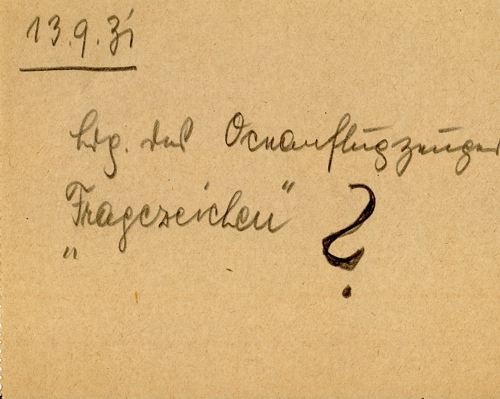 13.9.31
Ldg. des Oceanflugzeuges
„Fragezeichen“ ?